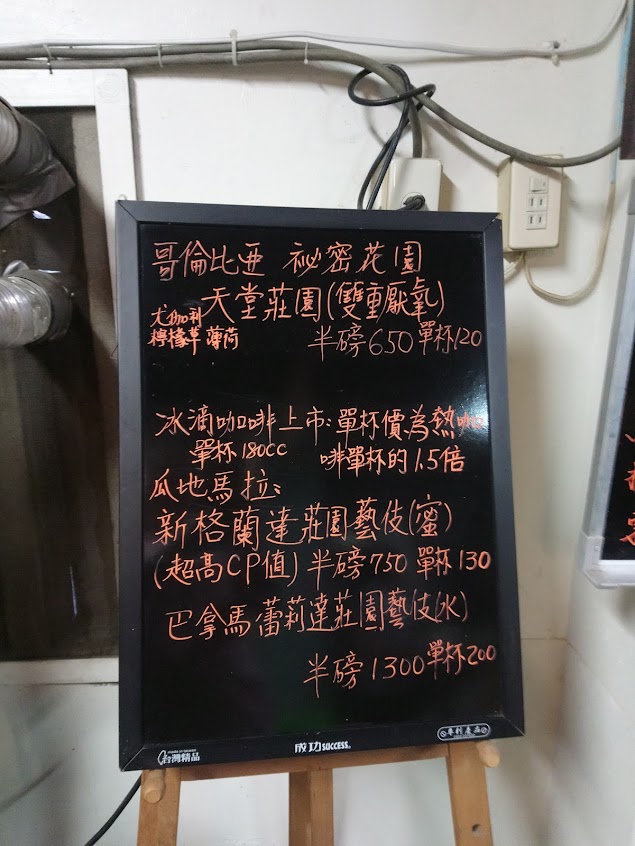 哥倫比亞 祕密花園
天堂莊園(雙重厭氧)
尤加利
檸檬草 薄荷
半磅650 單杯120
冰滴咖啡上市:單杯價為熱咖
單杯180cc 啡單杯的1.5倍
瓜地馬拉:
新格蘭達莊園藝伎(蜜)
(超高CP值) 半磅750 單杯130
巴拿馬蕾莉達莊園藝伎(水)
半磅1300 單杯200
台灣精品
成功 SUCCESS®
專利產品